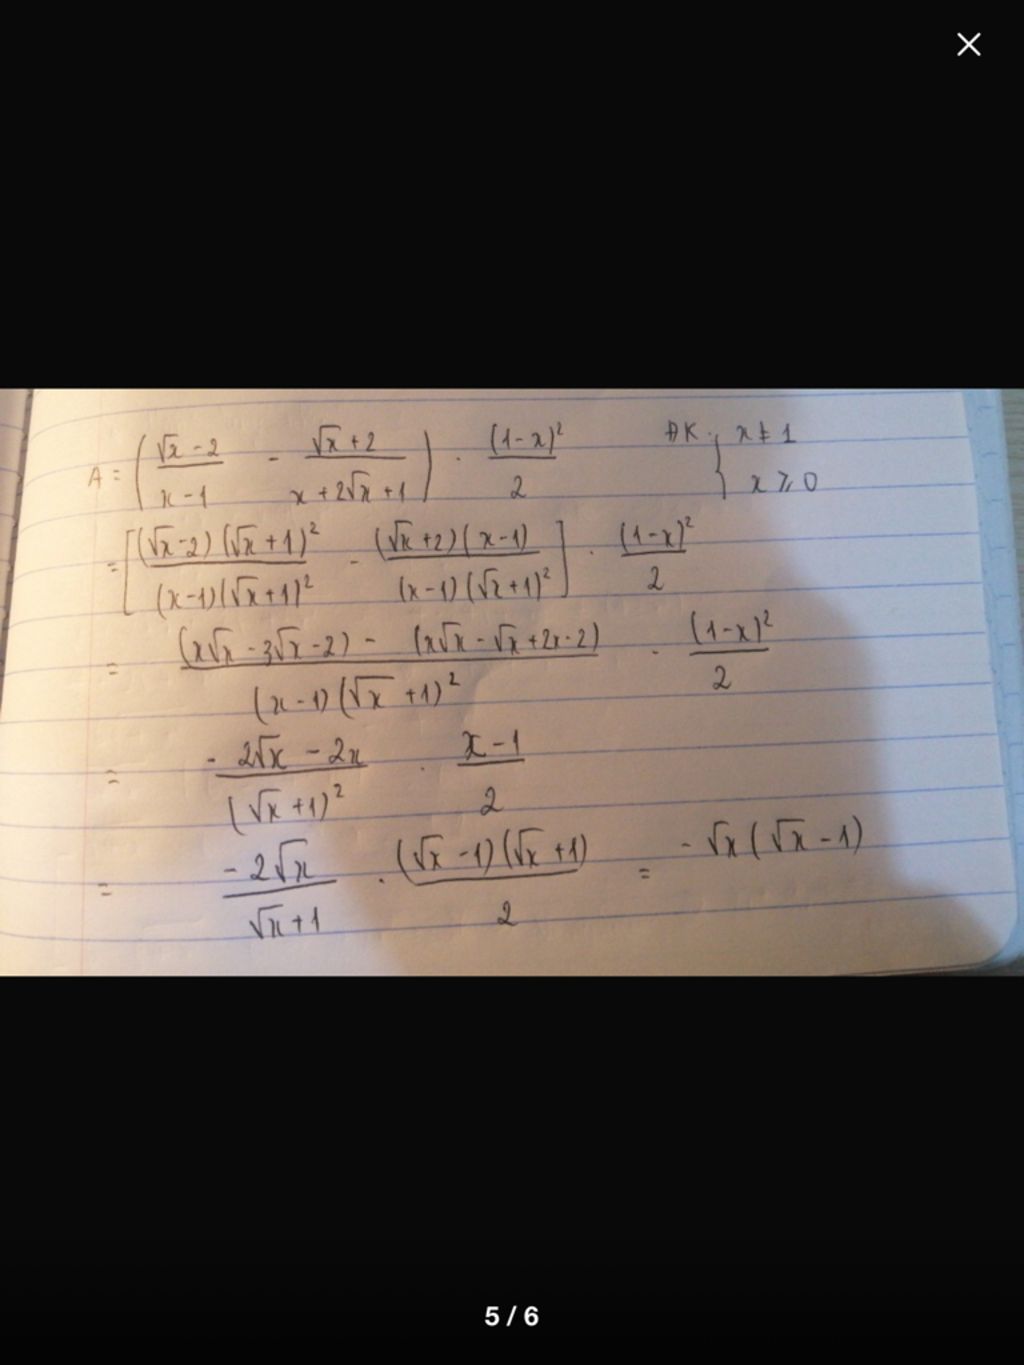 A = ( (√x - 2)/(x - 1) - (√x + 2)/(x + 2√x + 1) ) . (1-x)²/2 ĐK: { x ≠ 1
x ⩾ 0
= [ (√x - 2)(√x + 1)²/(x-1)(√x+1)² - (√x+2)(x-1)/(x-1)(√x+1)² ] . (1-x)²/2
= (x√x - 3√x - 2) - (x√x - √x + 2x - 2)/(x-1)(√x+1)² . (1-x)²/2
= - 2√x - 2x/(√x+1)² . x-1/2
= - 2√x/√x+1 . (√x - 1)(√x + 1)/2 = - √x(√x - 1)
5 / 6